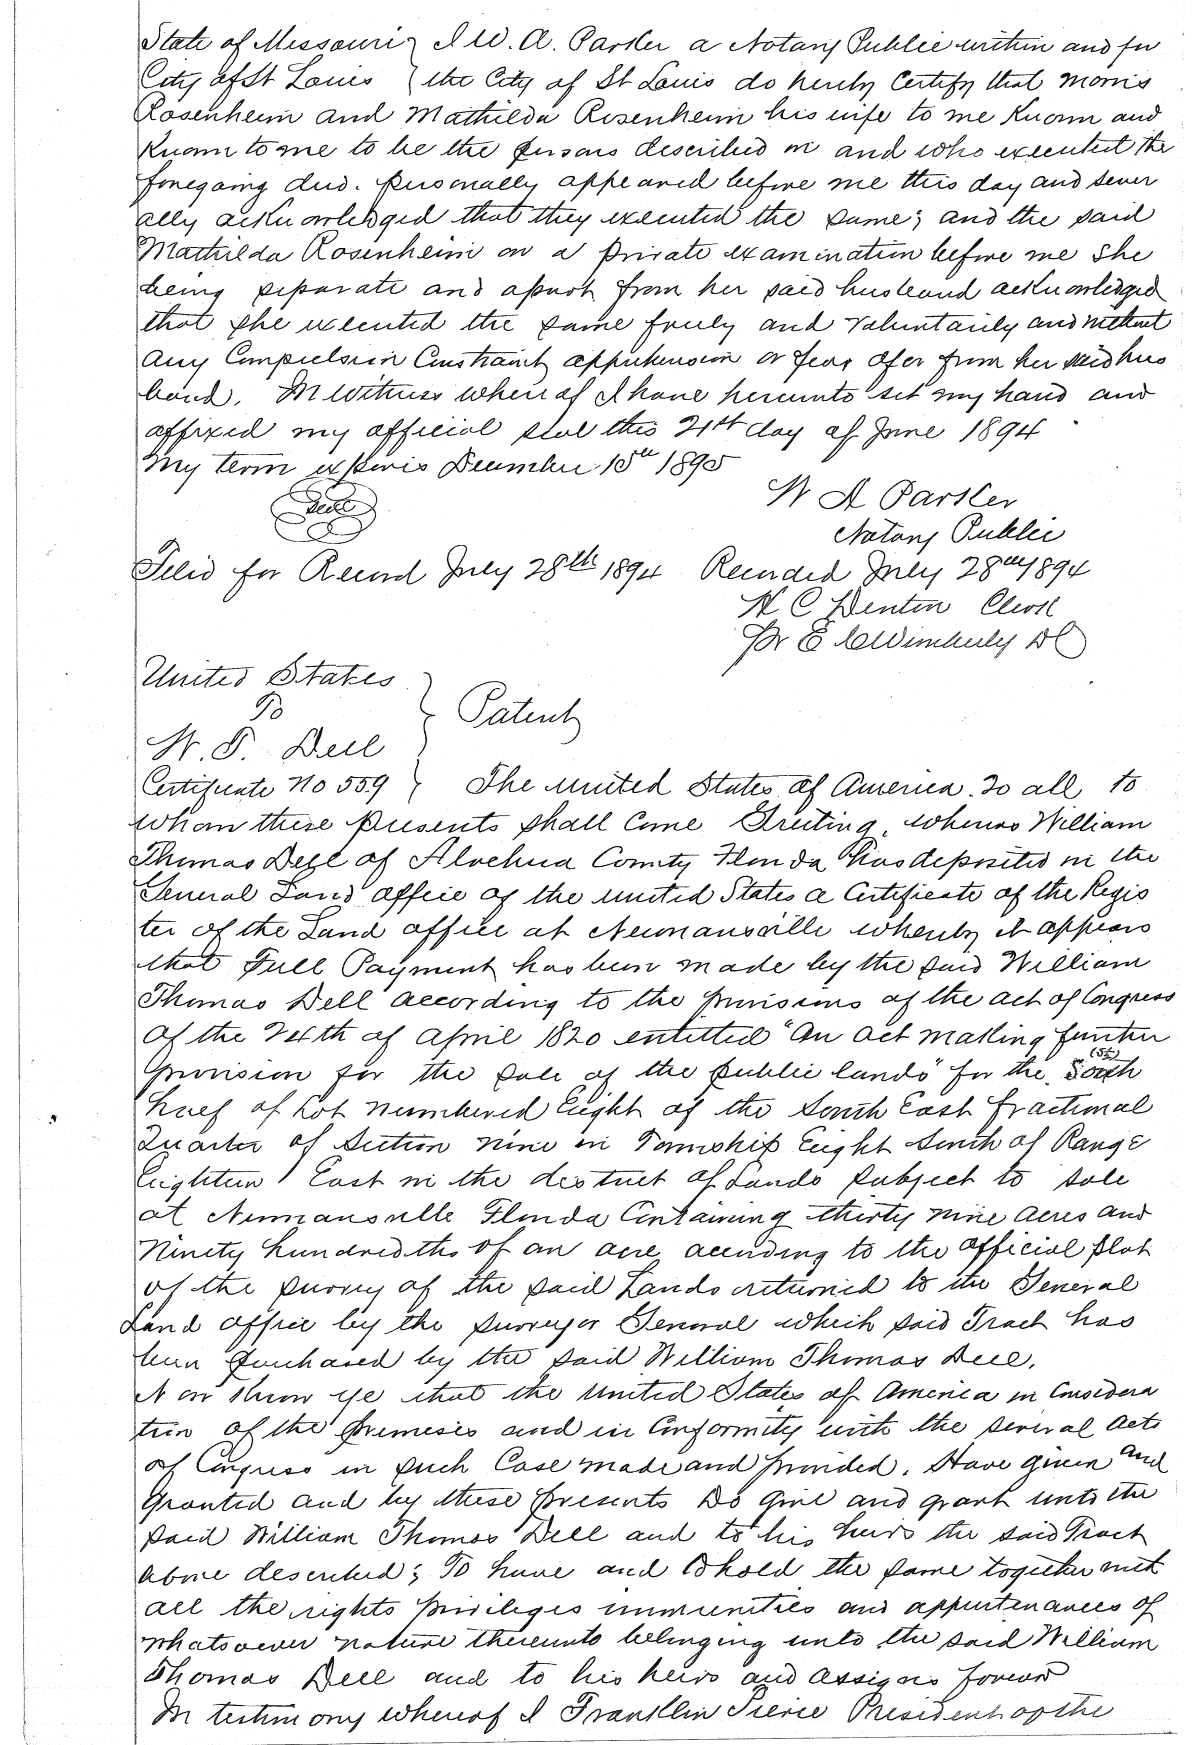 State of Missouri } I W. A. Parker a Notary Public within and for
City of St Louis } the City of St Louis do hereby Certify that Morris
Rosenheim and Mathilda Rosenheim his wife to me Known and
Known to me to be the persons described in and who executed the
foregoing deed. personally appeared before me this day and sever
ally acknowledged that they executed the same; and the said
Mathilda Rosenheim on a private examination before me she
being separate and apart from her said husband acknowledged
that she executed the same freely and voluntarily and without
any Compulsion Constraint apprehension or fear of or from her said hus
band. In witness whereof I have hereunto set my hand and
affixed my official seal this 21st day of June 1894
My term expires December 15th 1895
Seal
W A Parker
Notary Public
Filed for Record July 28th 1894 Recorded July 28th 1894
H C Denton Clerk
Pr E C Wimberly DC
United States
To
W. T. Dell
} Patent
Certificate No 559 } The United States of America. To all to
whom these presents shall Come Greeting, whereas William
Thomas Dell of Alachua County Florida has deposited in the
General Land office of the united States a Certificate of the Regis
ter of the Land office at Newnansville whereby it appears
that Full Payment has been made by the said William
Thomas Dell according to the provisions of the act of Congress
of the 24th of april 1820 entitled "An act making further
provision for the sale of the public lands" for the (St) South
half of Lot numbered Eight of the South East fractional
Quarter of Section nine in Township Eight South of Range
Eighteen East in the district of Lands subject to sale
at Newnansville Florida Containing thirty nine acres and
Ninety hundredths of an acre according to the official plat
of the survey of the said Lands returned to the General
Land office by the surveyor General which said Tract has
been purchased by the said William Thomas Dell.
Now Know ye that the United States of America in Considera
tion of the premeses and in Conformity with the several acts
of Congress in such Case made and provided. Have given and
granted and by these presents Do give and grant unto the
said William Thomas Dell and to his heirs the said Tract
above described; To have and to hold the same together with
all the rights privileges immunities and appurtenances of
whatsoever nature thereunto belonging unto the said William
Thomas Dell and to his heirs and assigns forever
In testimony whereof I Franklin Pierce President of the